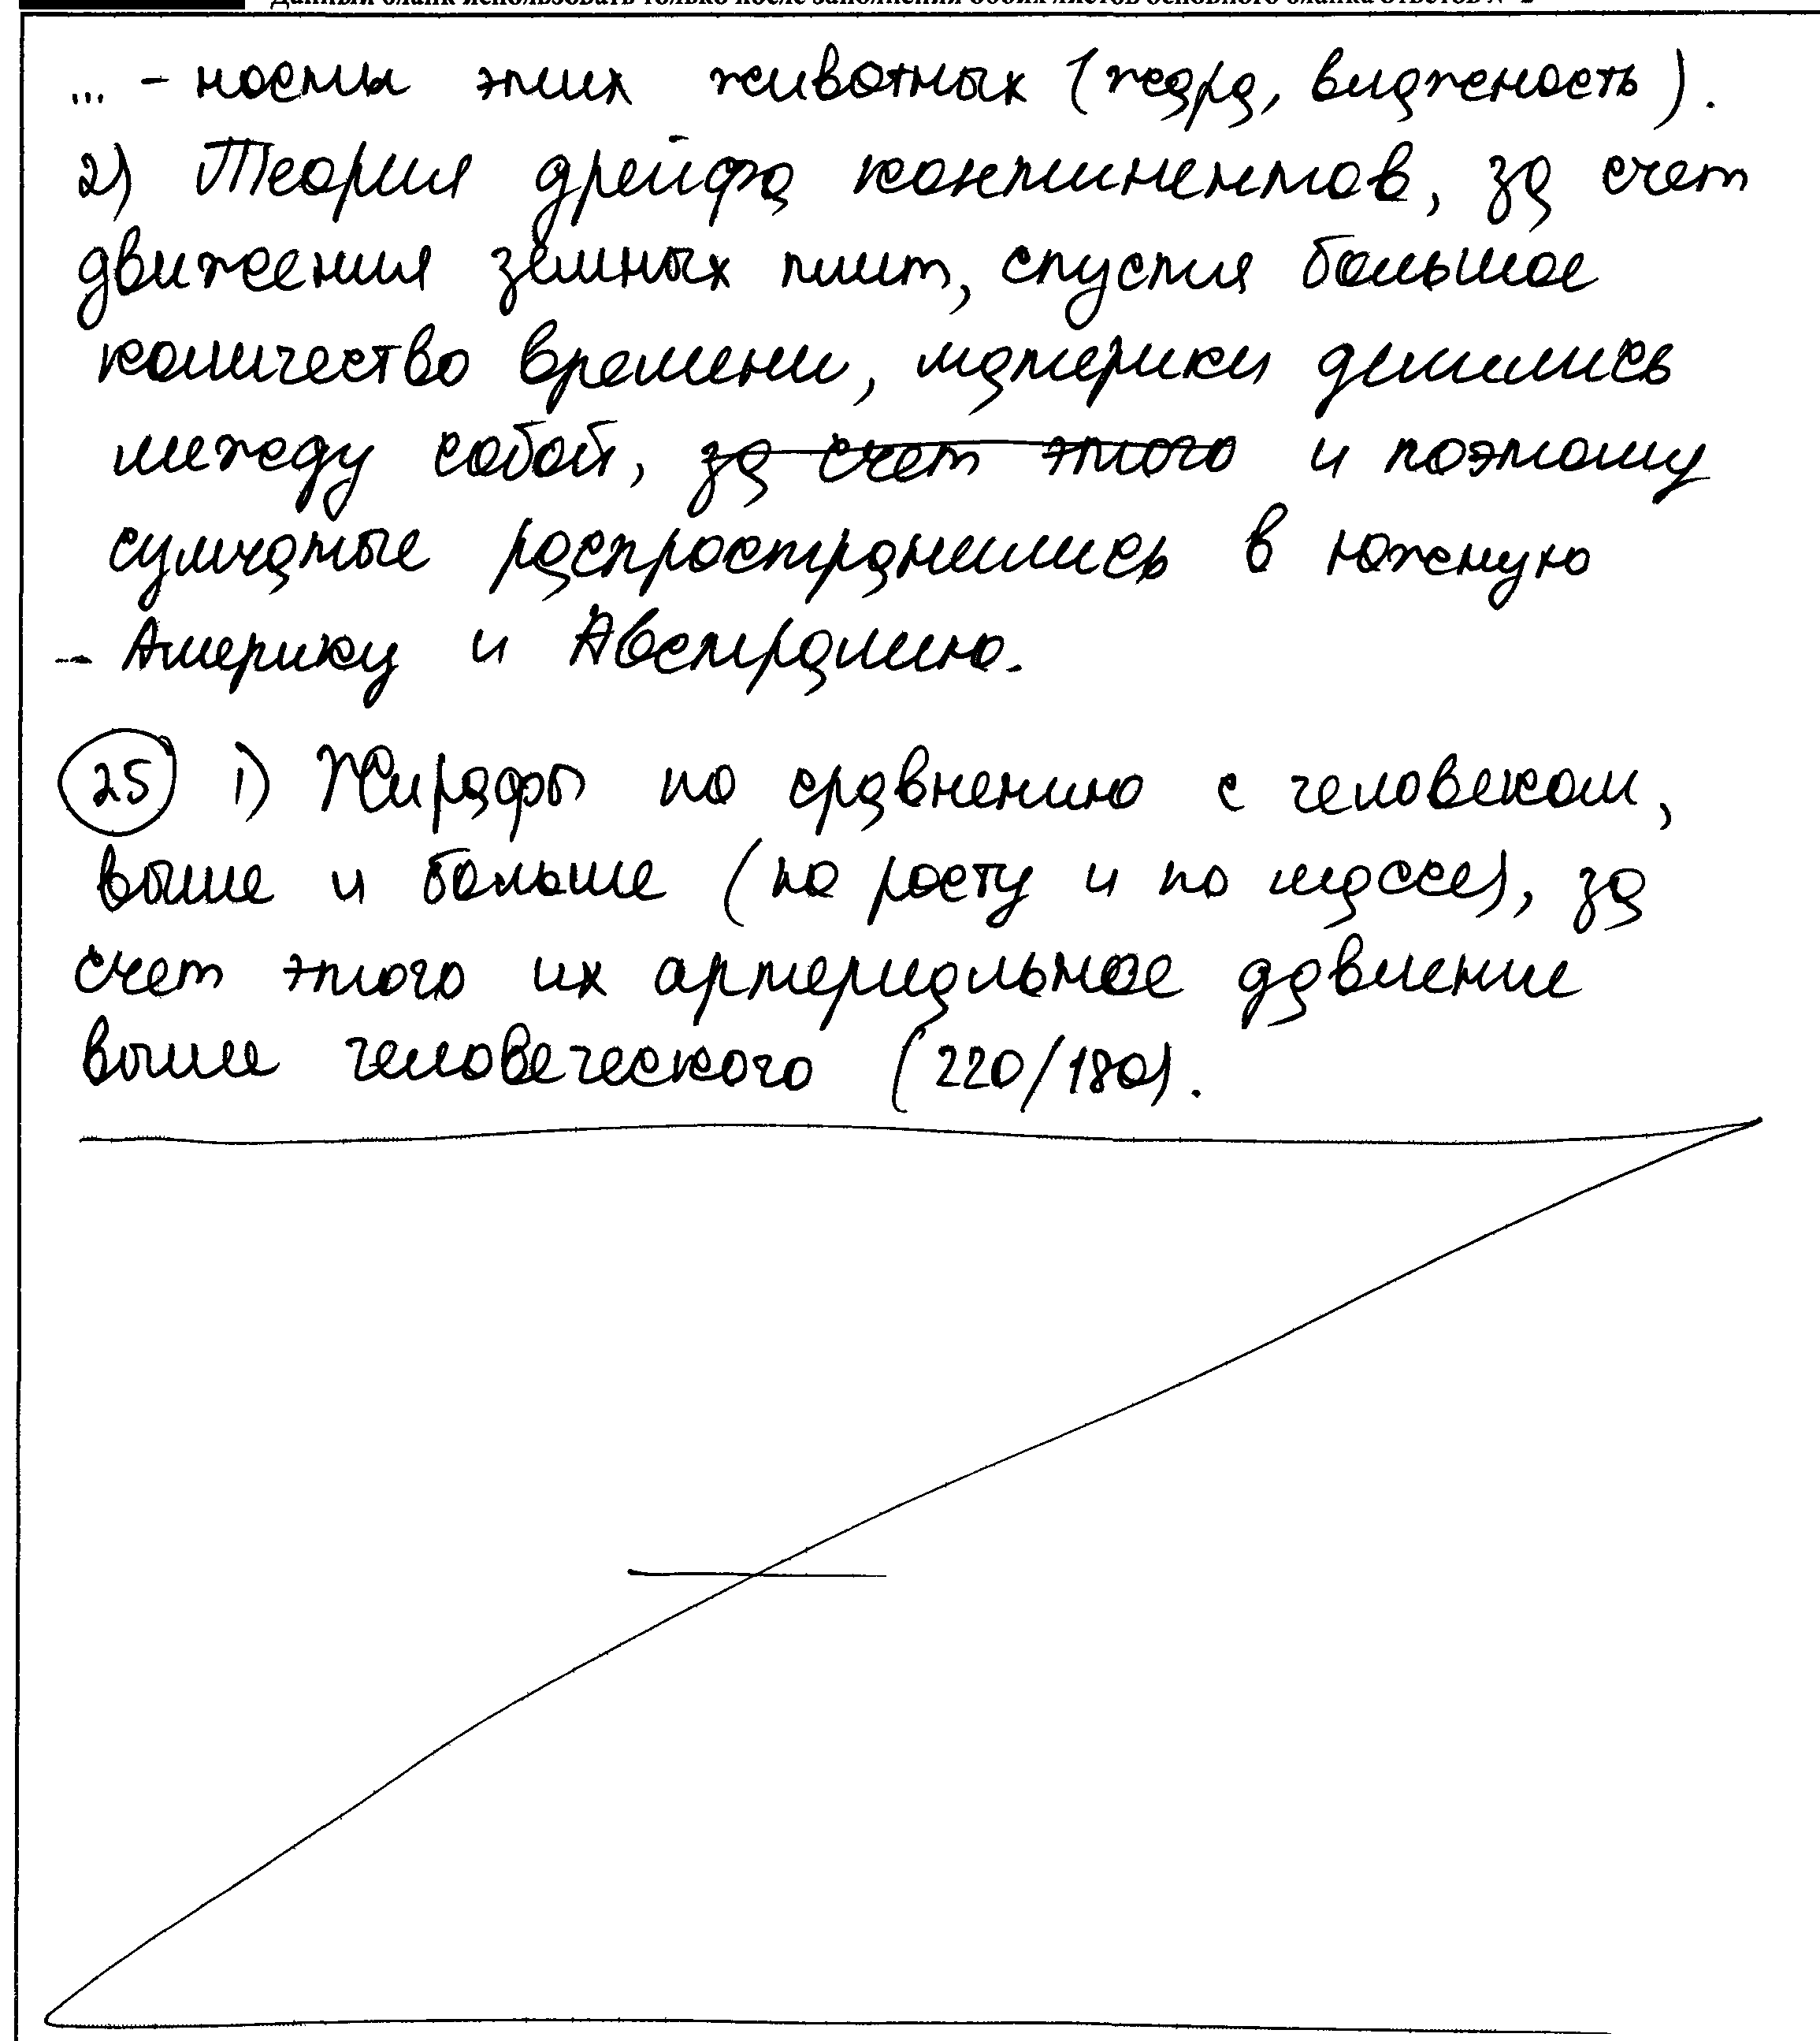 Данный бланк использовать только после заполнения обоих листов основного бланка ответов № 2
... - ности этих животных (жара, влажность).
2) Теория дрейфа континентов, за счет
движения земных плит, спустя большое
количество времени, материки делились
между собой, за счет этого и поэтому
сумчатые распространились в южную
Америку и Австралию.
25 1) Жирафы по сравнению с человеком,
выше и больше (по росту и по массе), за
счет этого их артериальное давление
выше человеческого (220/180).